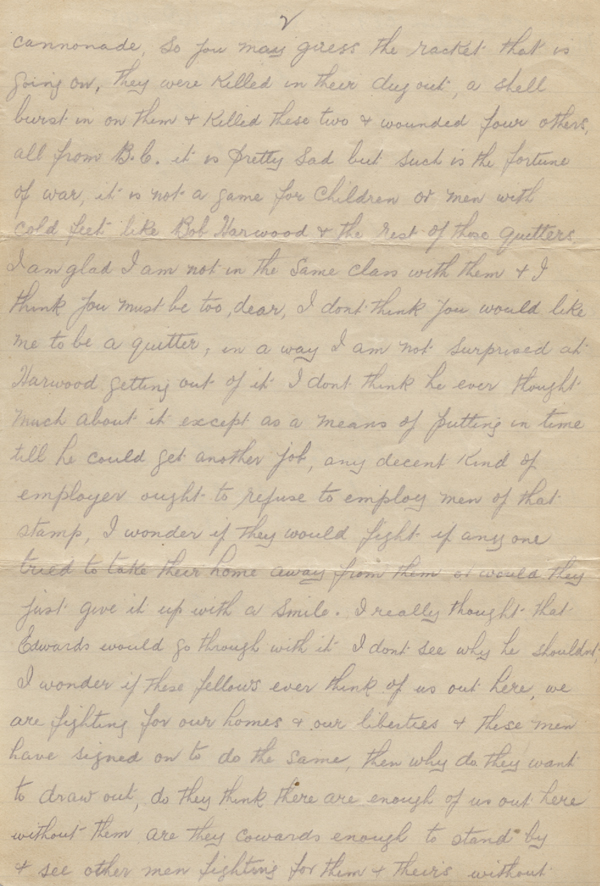 2
cannonade, so you may guess the racket that is
going on, they were killed in their dug out, a shell
burst in on them & killed these two & wounded four others,
all from B.C. it is pretty sad but such is the fortune
of war, it is not a game for children or men with
cold feet like Bob Harwood & the rest of those quitters
I am glad I am not in the same class with them & I
think you must be too, dear, I dont think you would like
me to be a quitter, in a way I am not surprised at
Harwood getting out of it I dont think he ever thought
much about it except as a means of putting in time
till he could get another job, any decent kind of
employer ought to refuse to employ men of that
stamp, I wonder if they would fight if any one
tried to take their home away from them or would they
just give it up with a smile. I really thought that
Edwards would go through with it I dont see why he shouldnt,
I wonder if these fellows ever think of us out here, we
are fighting for our homes & our liberties & these men
have signed on to do the same, then why do they want
to draw out, do they think there are enough of us out here
without them are they cowards enough to stand by
& see other men fighting for them & theirs without